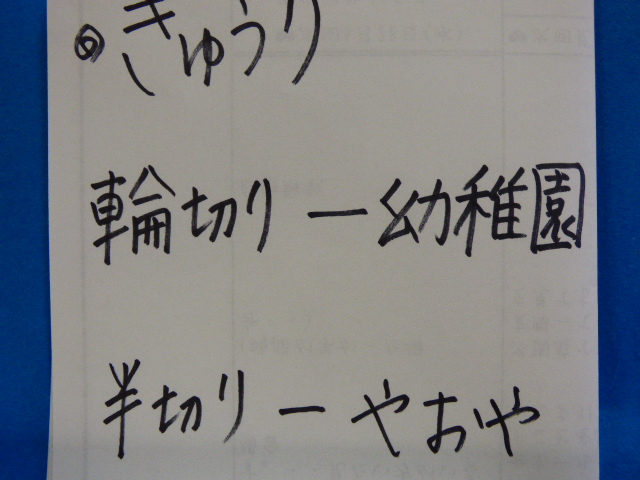 ◎きゅうり
輪切りー幼稚園
半切りーやおや